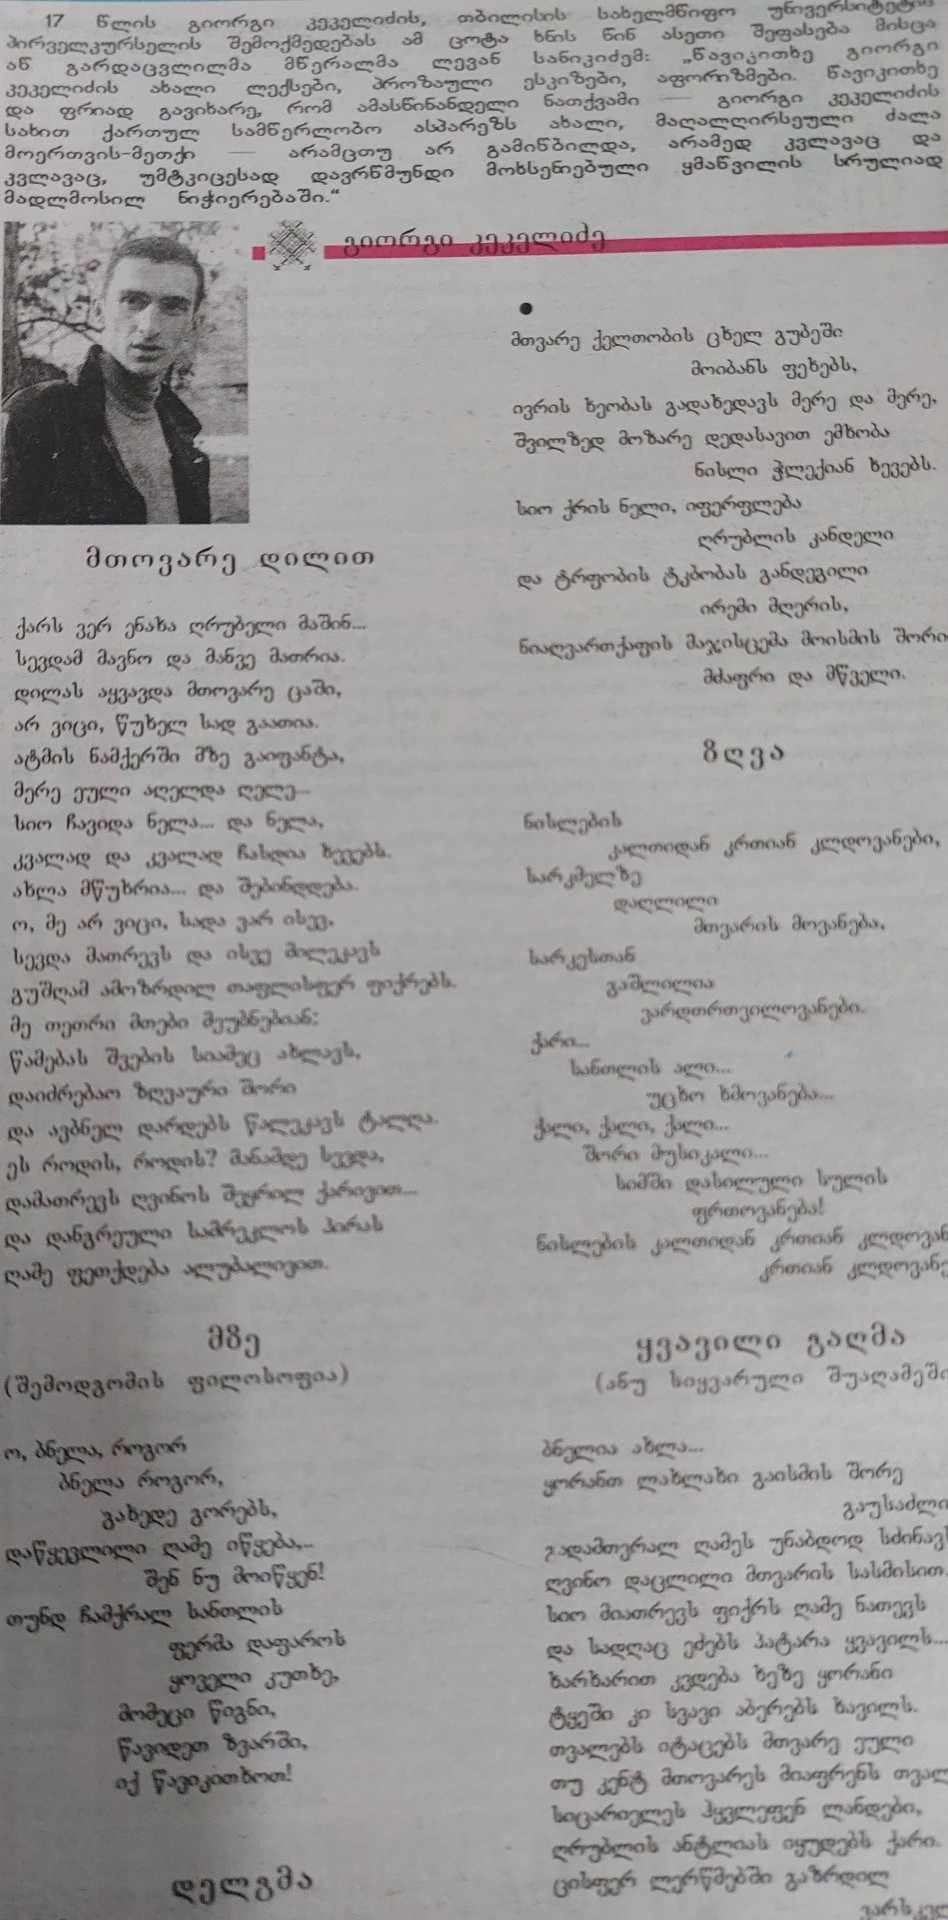 17 წლის გიორგი კეკელიძის, თბილისის სახელმწიფო უნივერსიტეტის
პირველკურსელის შემოქმედებას ამ ცოტა ხნის წინ ასეთი შეფასება მისცა
აწ გარდაცვლილმა მწერალმა ლევან სანიკიძემ: „წავიკითხე გიორგი
კეკელიძის ახალი ლექსები, პროზაული ესკიზები, აფორიზმები. წავიკითხე
და ფრიად გავიხარე, რომ ამასწინანდელი ნათქვამი — გიორგი კეკელიძის
სახით ქართულ სამწერლობო ასპარეზს ახალი, მაღალღირსეული ძალა
მოერთვის-მეთქი — არამცთუ არ გამიწბილდა, არამედ კვლავაც და
კვლავაც, უმტკიცესად დავრწმუნდი მოხსენიებული ყმაწვილის სრულიად
მადლმოსილ ნიჭიერებაში.“
გიორგი კეკელიძე
მთოვარე დილით
ქარს ვერ ენახა ღრუბელი მაშინ...
სევდამ მავნო და მანვე მათრია.
დილას აყვავდა მთოვარე ცაში,
არ ვიცი, წუხელ სად გაათია.
ატმის ნამქერში მზე გაიფანტა,
მერე ეული აღელდა ღელე...
სიო ჩავიდა ნელა... და ნელა,
კვალად და კვალად ჩასდია ხევებს.
ახლა მწუხრია... და შებინდდება.
ო, მე არ ვიცი, სადა ვარ ისევ,
სევდა მათრევს და ისევ მილეკავს
გუშღამ ამოზრდილ თაფლისფერ ფიქრებს.
მე თეთრი მთები მეუბნებიან:
წამებას შვების სიამეც ახლავს,
დაიძრებაო ზღვაური შორი
და ავბნელ დარდებს წალეკავს ტალღა.
ეს როდის, როდის? მანამდე სევდა,
დამათრევს ღვინოს შეყრილ ქარივით...
და დანგრეული სამრეკლოს პირას
ღამე ფეთქდება ალუბალივით.
მზე
(შემოდგომის ფილოსოფია)
ო, ბნელა, როგორ
ბნელა როგორ,
გახედე გორებს,
დაწყევლილი ღამე იწყება,..
შენ ნუ მოიწყენ!
თუნდ ჩამქრალ სანთლის
ფერმა დაფაროს
ყოველი კუთხე,
მომეცი წიგნი,
წავიდეთ ზვარში,
იქ წავიკითხოთ!
დელგმა
•
მთვარე ქელთობის ცხელ გუბეში
მოიბანს ფეხებს,
ივრის ხეობას გადახედავს მერე და მერე,
შვილზედ მოზარე დედასავით ემხობა
ნისლი ჭლექიან ხევებს.
სიო ქრის ნელი, იფერფლება
ღრუბლის კანდელი
და ტრფობის ტკბობას განდეგილი
ირემი მღერის,
ნიაღვართქაფის მაჯისცემა მოისმის შორი
მძაფრი და მწველი.
ზღვა
ნისლების
კალთიდან კრთიან კლდოვანები,
სარკმელზე
დაღლილი
მთვარის მოვანება,
სარკესთან
გაშლილია
ვარდთრთვილოვანები.
ქარი...
სანთლის ალი...
უცხო ხმოვანება...
ქალი, ქალი, ქალი...
შორი მუსიკალი...
სიმში დასილული სულის
ფრთოვანება!
ნისლების კალთიდან კრთიან კლდოვან
კრთიან კლდოვანე
ყვავილი გაღმა
(ანუ სიყვარული შუაღამეში
ბნელია ახლა...
ყორანთ ლახლახი გაისმის შორე
გაუსაძლი
გადამთვრალ ღამეს უნაბდოდ სძინავს
ღვინო დაცლილი მთვარის სასმისით.
სიო მიათრევს ფიქრს ღამე ნათევს
და სადღაც ეძებს პატარა ყვავილს...
ხარხარით კვდება ხეზე ყორანი
ტყეში კი სვავი აბერებს ხავილს.
თვალებს იტაცებს მთვარე ეული
თუ კენტ მთოვარეს მიაფრენს თვალ
სიცარიელეს ჰყვლეფენ ლანდები,
ღრუბლის ანტლიას იყუდებს ქარი.
ცისფერ ლერწმებში გაზრდილ
ვარსკვლ